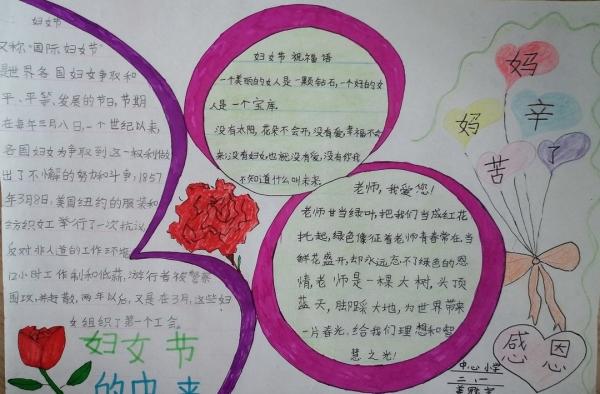 妇女节
又称"国际妇女节"
是世界各国妇女争取和
平、平等、发展的节日,节期
在每年三月八日,一个世纪以来,
各国妇女为争取到这一权利做
出了不懈的努力和斗争,1857
年3月8日,美国纽约的服装和
纺织女工举行了一次抗议,
反对非人道的工作环境,
12小时工作制和低薪,游行者被警察
围攻,并赶散,两年以后,又是在3月,这些妇
女组织了第一个工会。
妇女节
的由来
妇女节祝福语
一个美丽的女人是一颗钻石,一个好的女
人是一个宝库
没有太阳,花朵不会开,没有爱,幸福不会
来,没有妇女,也就没有爱,没有你我
不知道什么叫未来
老师,我爱您!
老师甘当绿叶,把我们当成红花
托起,绿色像征着老师青春常在,当
鲜花盛开,却永远忘不了绿色的恩
情,老师是一棵大树,头顶
蓝天,脚踩大地,为世界带来
一片春光,给我们理想和智
慧之光!
妈
妈
辛
苦
了
感恩
中心小学
二、一